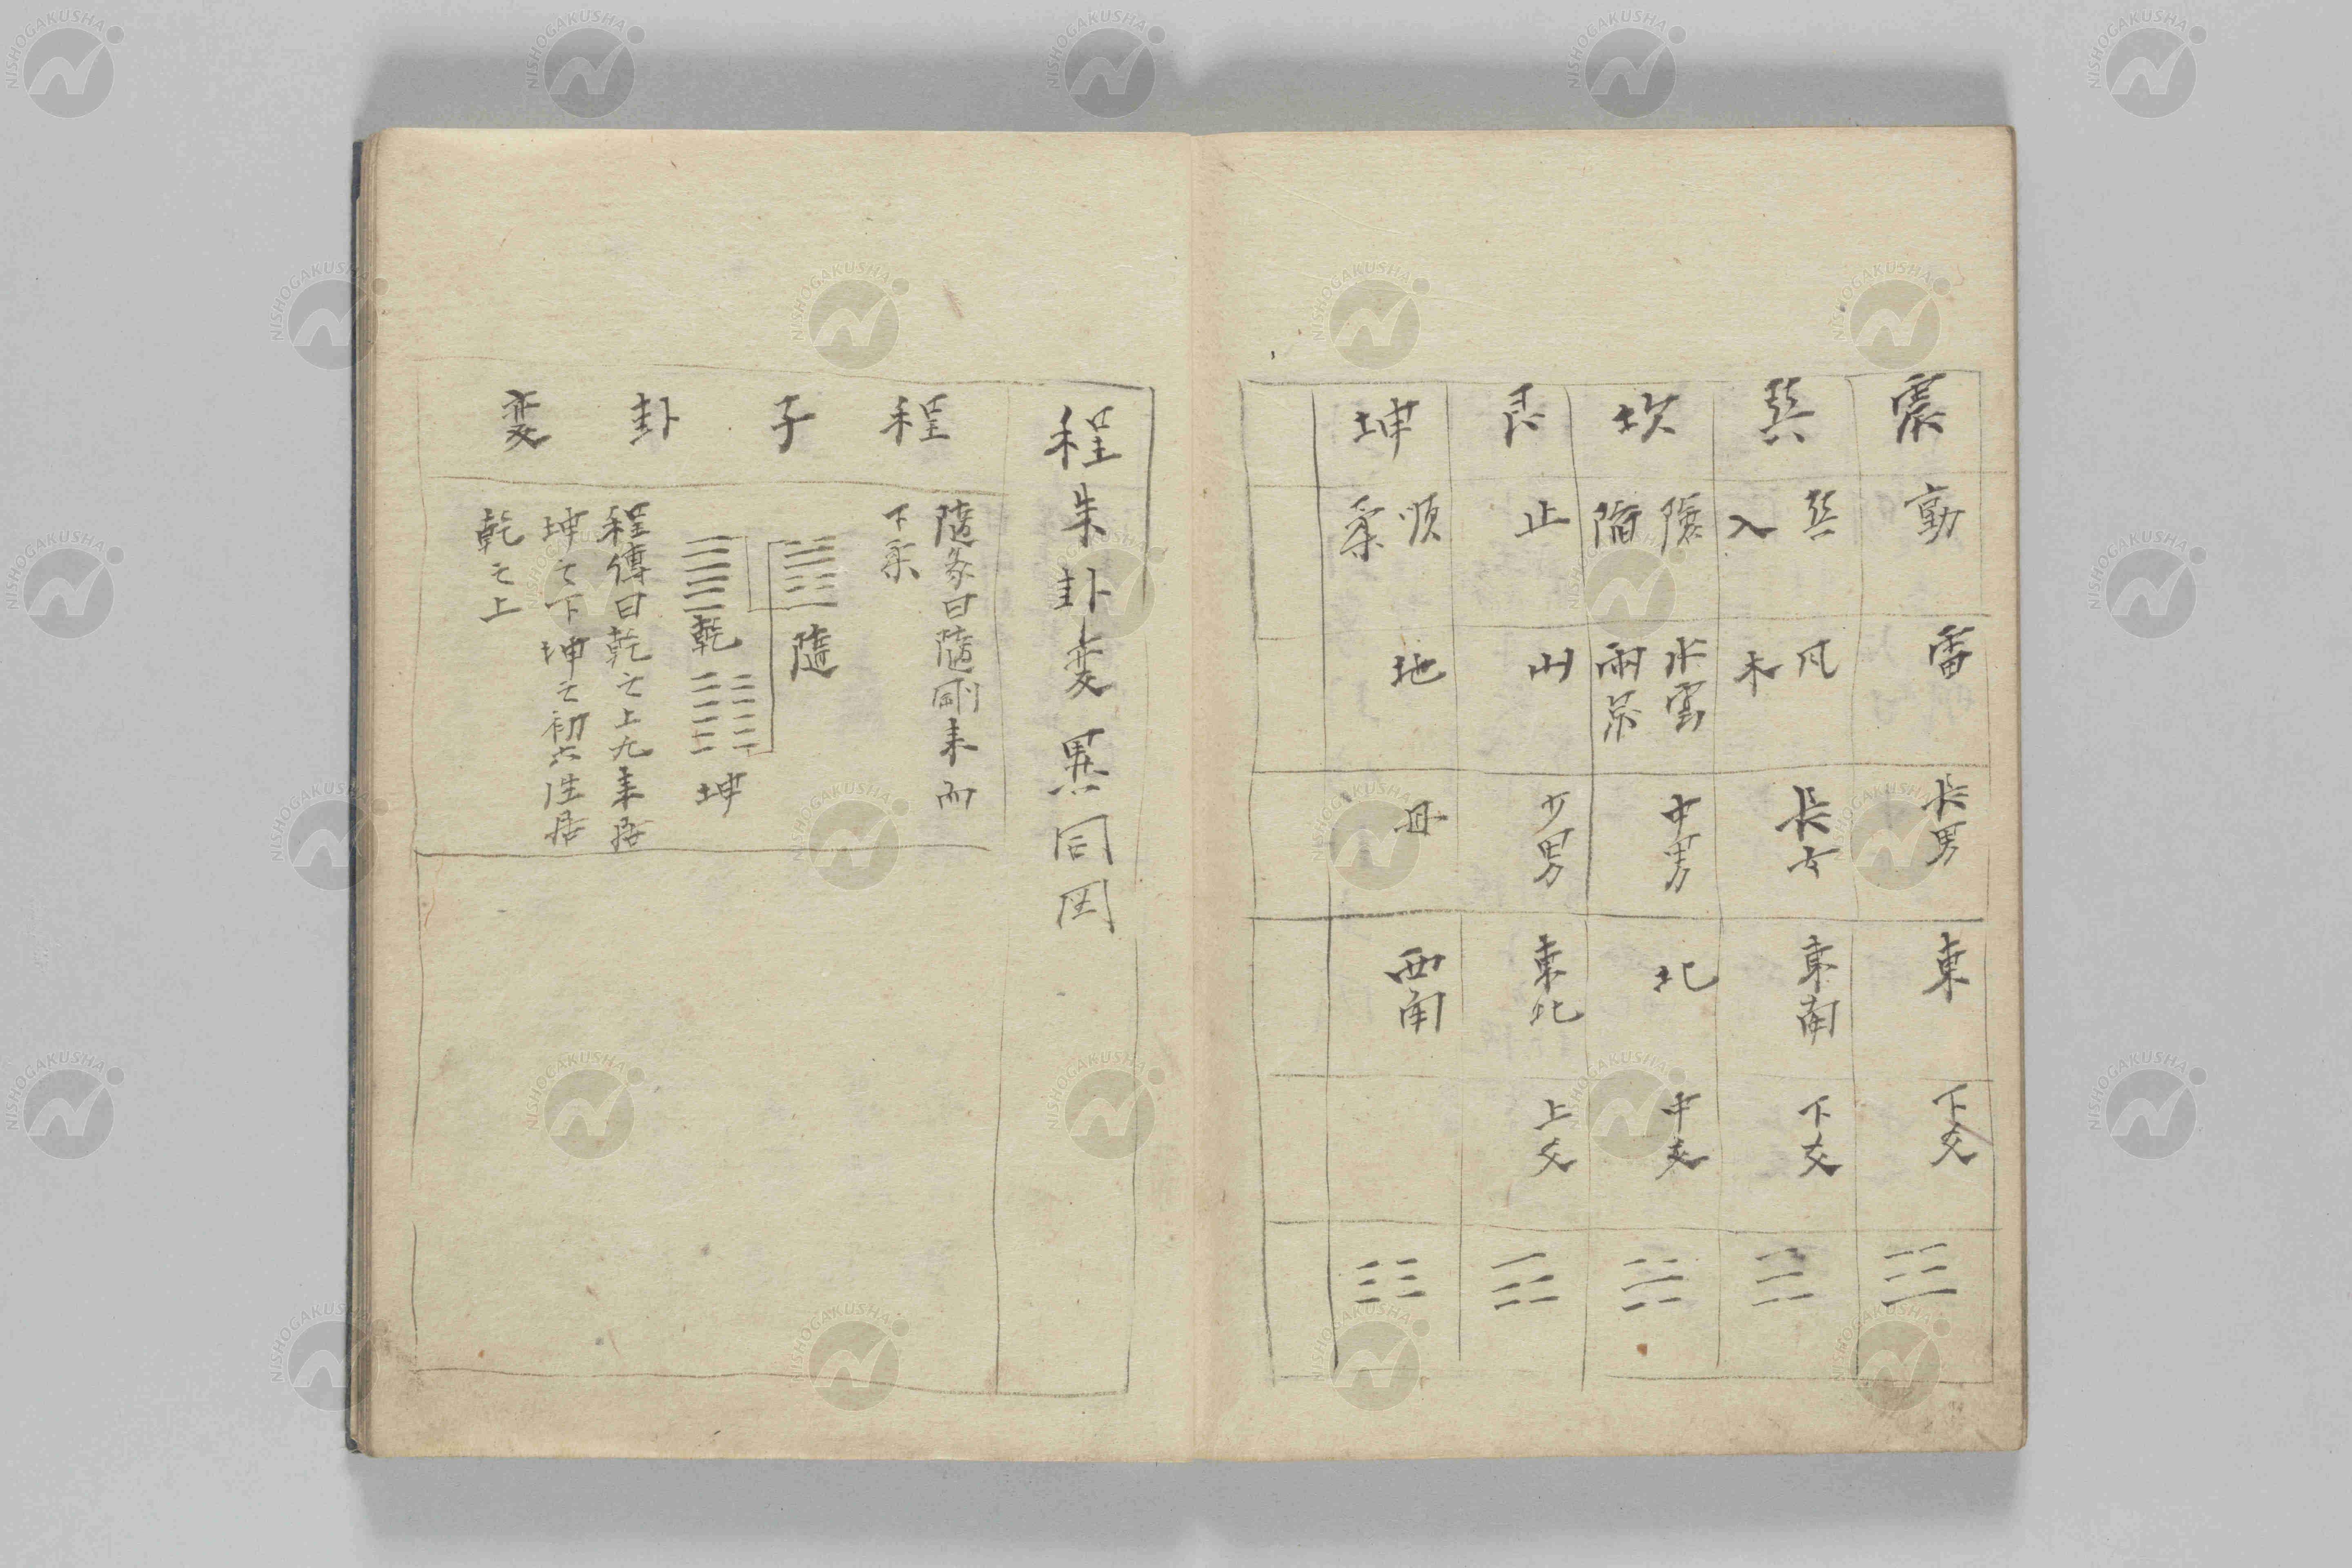 震 動 雷 長男 東 下爻 ☳
巽 巽入 凡木 長女 東南 下爻 ☴
坎 險陷 水雲雨泉 中男 北 中爻 ☵
艮 止 山 少男 東北 上爻 ☶
坤 順柔 地 母 西南 ☷
程朱卦変異同図
程子卦変
隨彖曰隨剛来而
下柔
隨
乾 坤
程傳曰乾之上九来居
坤之下坤之初六往居
乾之上
NISHOGAKUSHA